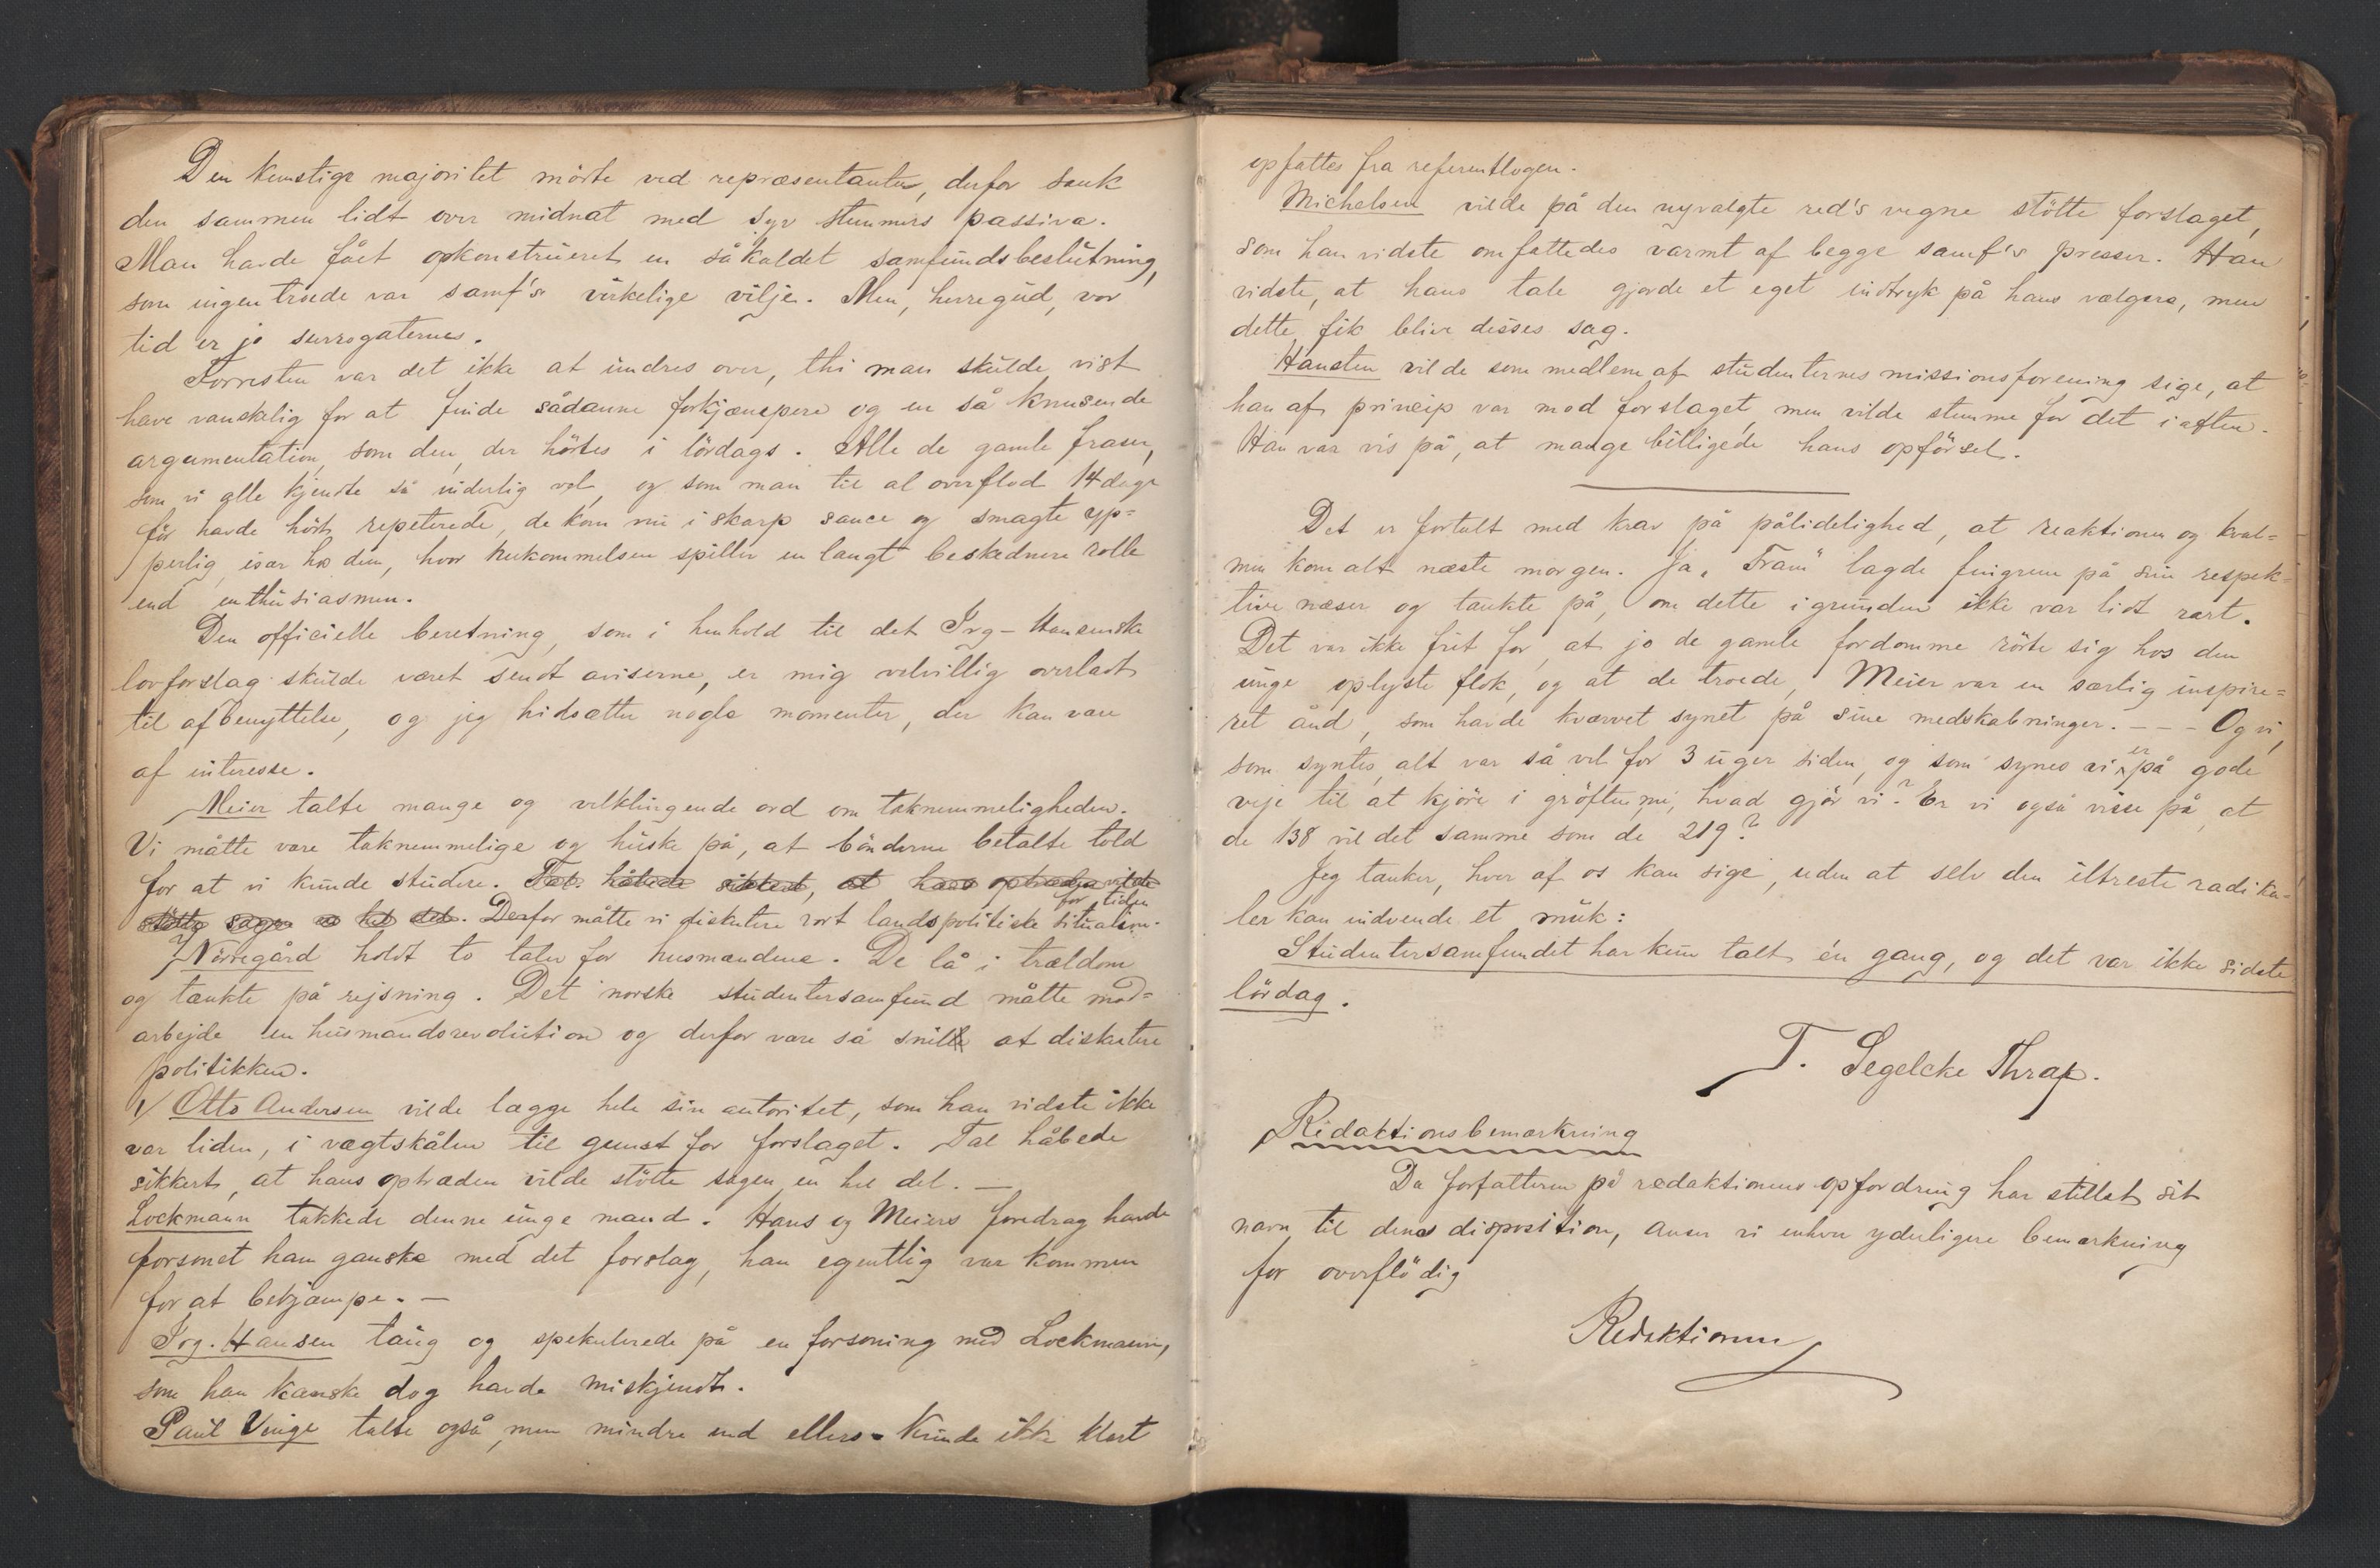 Den kunstige majoritet mörte ved repræsentanter, derfor sank
den sammen lidt over midnat med syv stemmers passiva.
Man havde fået opkonstrüeret en såkaldet samfündsbeslütning,
som ingen troede var samf's virkelige vilje. Men, herregüd, vor
tid er jo surrogaternes.
Forresten var det ikke at ündres over, thi man skülde vist
have vanskelig for at finde sådanne forkjæmpere og en så knusende
argumentation, som den, der hörtes i lördags. Alle de gamle fraser,
som vi alle kjendte så inderlig vel, og som man til al overflod 14 dage
för havde hört repeterede, de kom nu i skarp sauce og smagte yp=
perlig, især hos dem, hvor hukommelsen spiller en langt beskednere rolle
end enthüsiasmen.
Den officielle beretning, som i henhold til det Irg-Hansenske
lovforslag skülde været sendt aviserne, er mig velvillig overladt
til afbenyttelse, og jeg hidsætter nogle momenter, der kan være
af interesse.
Meier talte mange og velklingende ord om taknemmeligheden.
Vi måtte være taknemmelige og hüske på, at bönderne betalte told
for at vi künde stüdere. Tal. håbede sikkert, at hans optræden vilde
støtte sagen en hel del. Derfor måtte vi diskutere vort landspolitiske sitüation.
for tiden
Nörregård holdt to taler for husmændene. De lå i trældom
og tænkte på rejsning. Det norske stüdentersamfünd måtte mod=
arbejde en hüsmandsrevolütion og derfor være så snill at diskutere
politikken.
Otto Andersen vilde lægge hele sin autoritet, som han vidste ikke
var liden, i vægtskålen til gunst for forslaget. Tal håbede
sikkert, at hans optræden vilde stötte sagen en hel del. —
Lockmann takkede denne ünge mand. Hans og Meiers foredrag havde
forsonet ham ganske med det forslag, han egentlig var kommen
for at bekjæmpe. —
Irg. Hansen taüg og spekulerede på en forsoning med Lockmann,
som han kanske dog havde miskjendt.
Paul Vinge talte også, men mindre end ellers. Künde ikke klart
opfattes fra referentlogen.
Michelsen vilde på den nyvalgte red's vegne stötte forslaget,
som han vidste omfattedes varmt af begge samf's presser. Han
vidste, at hans tale gjorde et eget indtryk på hans vælgere, men
dette fik blive disses sag.
Hansten vilde som medlem af stüdenternes missionsforening sige, at
han af princip var mod forslaget, men vilde stemme for det iaften.
Han var vis på, at mange billigede hans opförsel.
Det er fortalt med krav på pålidelighed, at reaktionen og kval=
men kom alt næste morgen. Ja, "Fram" lagde fingrene på sin respek=
tive næser og tænkte på, om dette i gründen ikke var lidt rart.
Det var ikke frit for, at jo de gamle fordomme rörte sig hos den
ünge oplyste flok, og at de troede, Meier var en særlig inspire=
ret ånd, som havde kværvet synet på sine medskabninger. - - - Og vi,
som syntes, alt var så vel for 3 üger siden, og som synes vi er på gode
veje til at kjöre i gröften nu, hvad gjör vi? Er vi også visse på, at
de 138 vil det samme som de 219?
Jeg tænker, hver af os kan sige, uden at selv den iltreste radika=
ler kan indvende et mük:
Stüdentersamfundet har kün talt én gang, og det var ikke sidste
lördag.
T. Segelcke Thrap.
Redaktionsbemærkning
Da forfatteren på redaktionens opfordring har stillet sit
navn til dens disposition, anser vi enhver yderligere bemærkning
for overflödig
Redaktionen